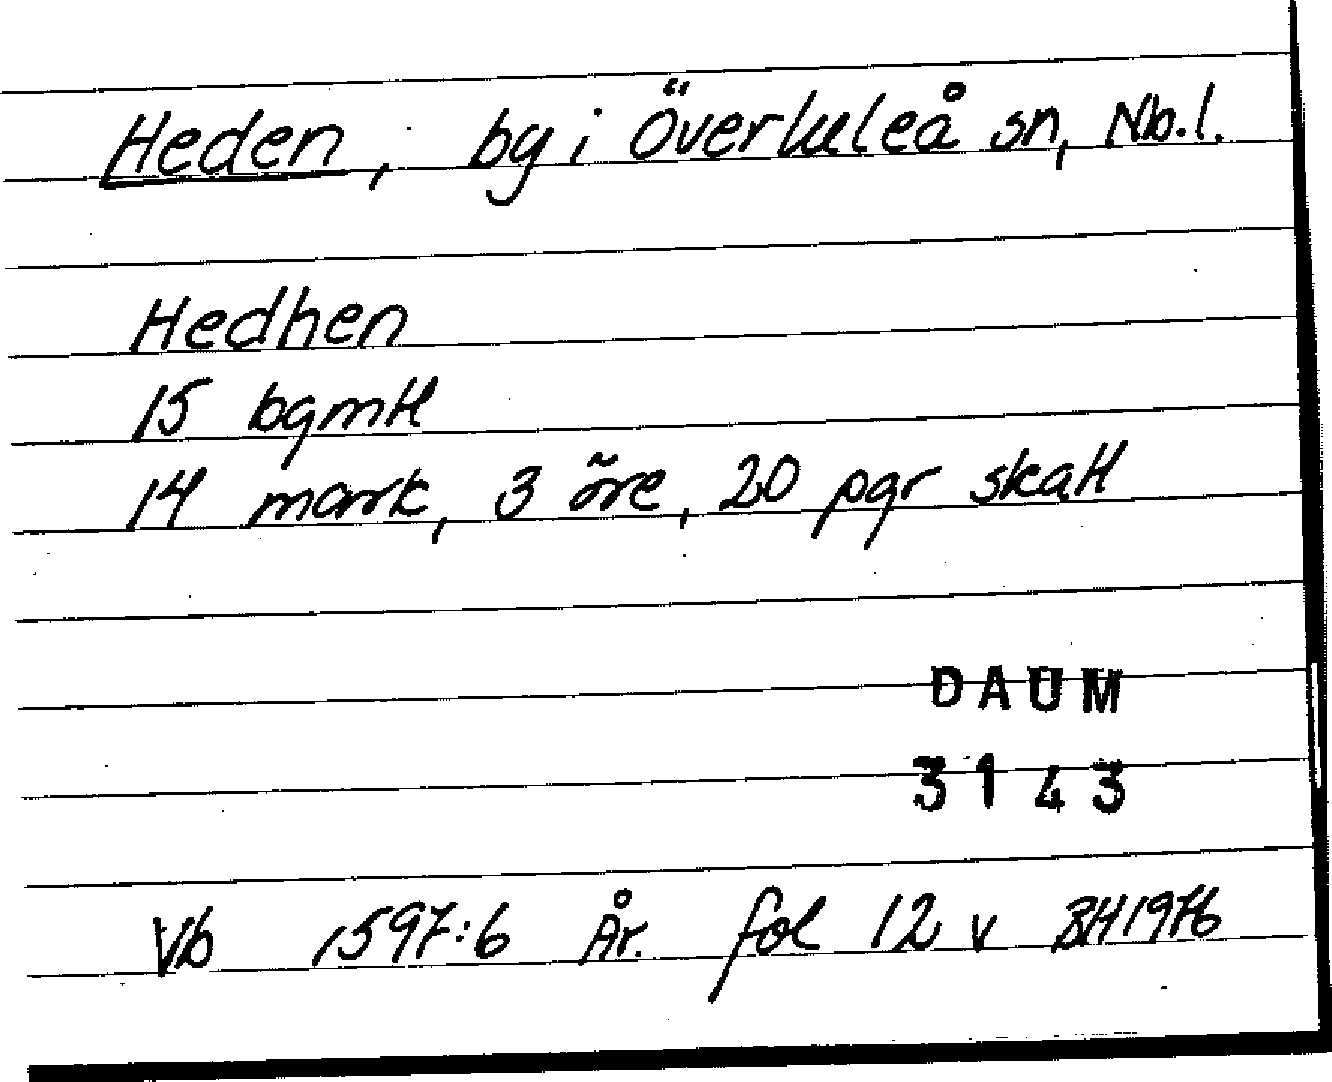 Heden, by i Överluleå sn, Nb.l.
Hedhen
15 bgmtl
14 mark, 3 öre, 20 pgr skatt
DAUM
3143
Vb 1597:6 År. fol 12 v BH 1976